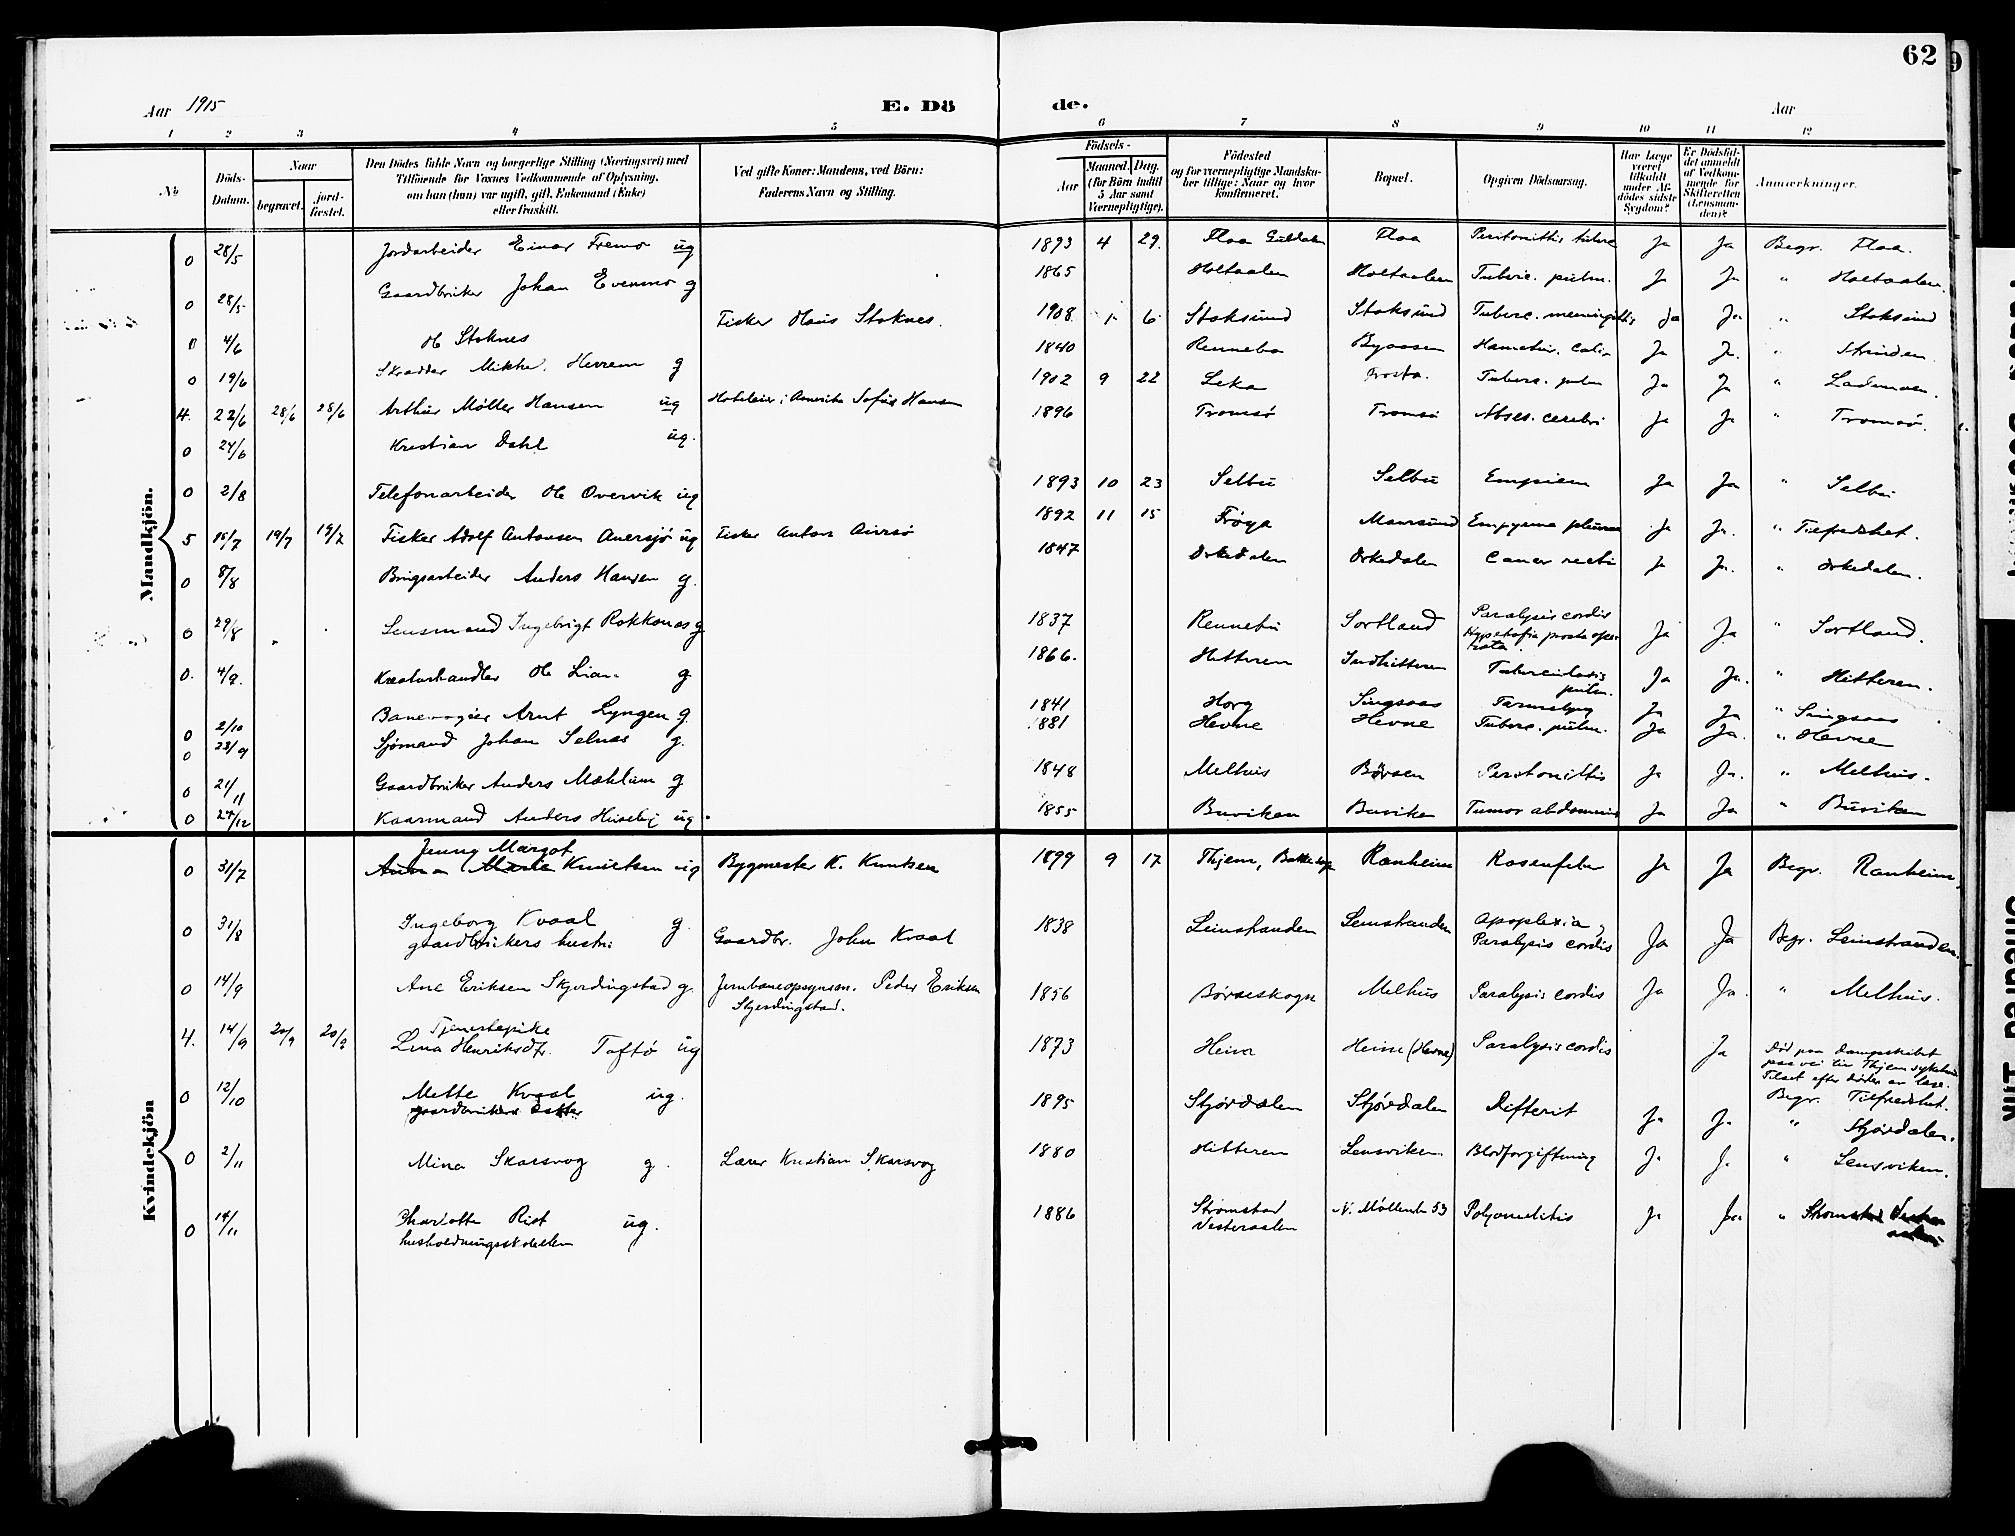 62
Aar 1915
E. Dö
de.
Aar
1 2 3 4 5 6 7 8 9 10 11 12
No
Döds-Datum.
Naar
begravet.
jordfæstet.
Den Dödes fulde Navn og borgerlige Stilling (Næringsvei) med
Tilföiende for Voxnes Vedkommende af Oplysning,
om han (hun) var ugift, gift, Enkemand (Enke)
eller fraskilt.
Ved gifte Koner: Mandens, ved Börn:
Faderens Navn og Stilling.
Födsels-
Aar
Maaned. Dag.
(for Börn indtil
5 Aar samt
Værnepligtige).
Födested
og for værnepligtige Mandska-
ber tillige: Naar og hvor
konfirmeret.
Bopæl.
Opgiven Dödsaarsag.
Har Læge
været
tilkaldt
under Af-
dödes sidste
Sygdom?
Er Dödsfal-
det anmeldt
af Vedkom-
mende for
Skifteretten
(Lensman-
den)?
Anmærkninger.
Mandkjön.
0 28/5 Jordarbeider Einar Fremo ug 1893 4 29. Flaa Guldalen Flaa Peritonittis tuberc Ja Ja Begr. Flaa.
0 28/5 Gaardbruker Johan Evenmo g 1865 Holtaalen Holtaalen Tuberc. pulm. Ja Ja " Holtaalen.
0 4/6 Ole Stoknes Fisker Hans Stoknes. 1908 1 6 Stoksund Stoksund Tuberc. meningittis Ja Ja " Stoksund
0 19/6 Skrædder Mikkel Herrem g 1840 Rennebo Byaasen Ja Ja " Strinden.
4. 22/6 28/6 28/6 Arthur Møller Hansen ug Hoteleier i Amerika Sofus Hansen 1902 9 22 Leka Frosta. Tuberc. pulm Ja Ja " Lademoen.
0 24/6 Kristian Dahl ug. 1896 Tromsø Tromsø Abses. cerebri Ja Ja " Tromsø.
0 2/8 Telefonarbeider Ole Overvik ug 1893 10 23 Selbu Selbu Empiem Ja Ja " Selbu
5 15/7 19/7 19/7 Fisker Adolf Antonsen Auersjø ug Fisker Anton Auersø 1892 11 15 Frøya Mausund Empyema pleurae Ja Ja. " Tilfredshet.
0 8/8 Brugsarbeider Anders Hansen g. 1847 Orkedalen Orkedalen Cancer recti Ja Ja. " Orkedalen.
0 29/8 Lensmand Ingebrigt Rokkones g 1837 Rennebu Sortland Paralysis cordis
Ja Ja " Sortland.
0. 4/9. Kreaturhandler Ole Lian g 1866. Hitteren Indhitteren Tuberculosis
pulm. Ja Ja. " Hitteren.
0 2/10 Banevogter Arnt Lyngen g. 1841 Horg Singsaas Ja Ja " Singsaas
0 23/9 Sjømand Johan Selnes g. 1881 Hevne Hevne Tuberc. pulm. Ja Ja. " Hevne
0 21/11 Gaardbruker Anders Mæhlum g 1848 Melhus Børsen Peritonittis Ja Ja. " Melhus.
0 27/12 Kaarmand Anders Huseby ug. 1855 Buviken Buviken Tumor abdominis Ja Ja " Buviken
Kvindekjön
Jenny Margot
0 31/7 Anna Marie Knutsen ug Bygmester K. Knutsen 1899 9 17 Thjem, Ranheim Rosenfeber Ja Ja Begr. Ranheim.
0 31/8 Ingeborg Kvaal g. Gaardbr. John Kvaal 1838 Leinstranden Leinstranden Apoplexia, Ja Ja Begr. Leinstranden.
gaardbrukers hustru Paralysis cordis
0 14/9 Ane Eriksen Skjerdingstad g. Jernbaneopsynsm. Peder Eriksen 1856 Børseskogn Melhus Paralysis cordis Ja Ja " Melhus.
Skjerdingstad.
Tjenestepike
4. 14/9 20/9 20/9 Lina Henriksdtr. Toftø ug 1873 Heine (Hevne) Paralysis cordis Ja Død paa Dampskibet
paa vei til Thjem sykehus
Tilset efter døden av læge.
Begr. Tilfredshet.
0 12/10 Mette Kvaal ug. 1895 Stjørdalen Stjørdalen Difterit Ja Ja " Stjørdalen.
gaardbrukers datter
0 2/11 Mina Skarsvog g. Lærer Kristian Skarsvog 1880 Hitteren Lensviken Blodforgiftning Ja Ja " Lensviken.
0 14/11 Charlotte Rist ug. 1886 Strømstad N. Møllenb 53 Polyomelitis Ja Ja " Strømstad
husholdningsskoleelev Vesteraalen